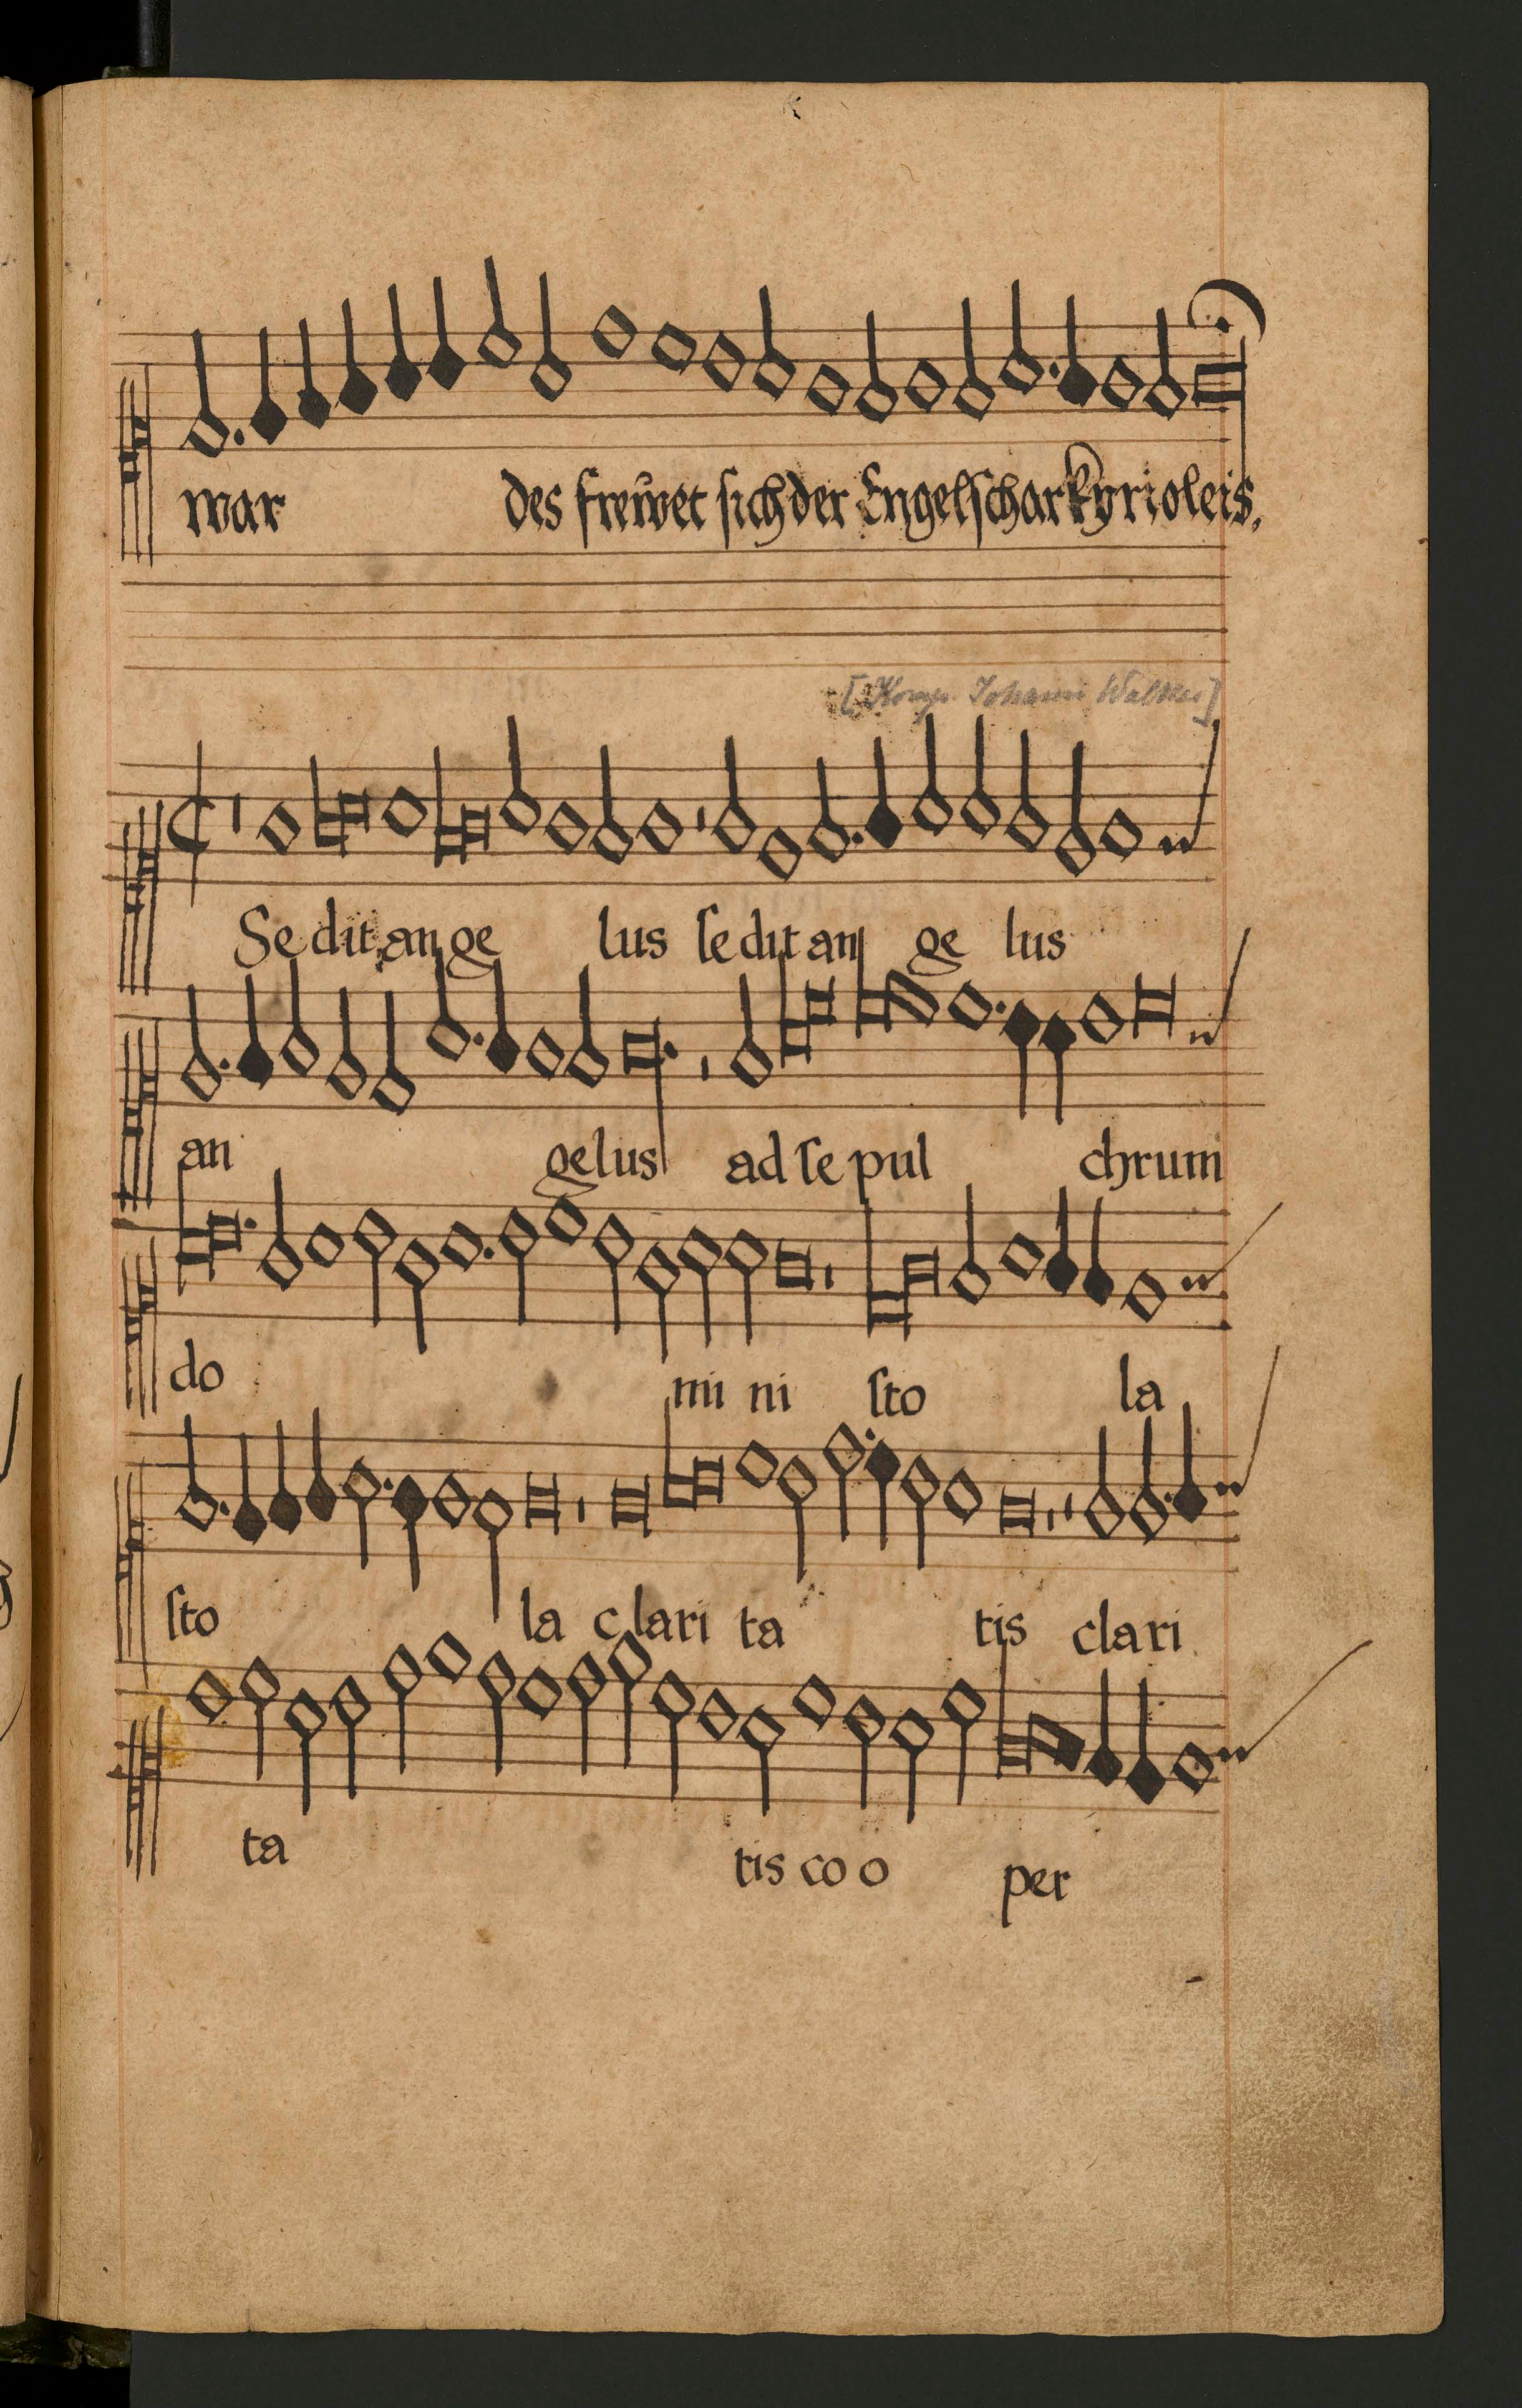 war des frewet sich der Engelschar kyrioleis.
[Komp. Johann Walther]
Se dit an ge lus ſe dit an ge lus
an gelus ad ſe pul chrum
do mi ni ſto la
ſto la clari ta tis clari
ta tis co o per